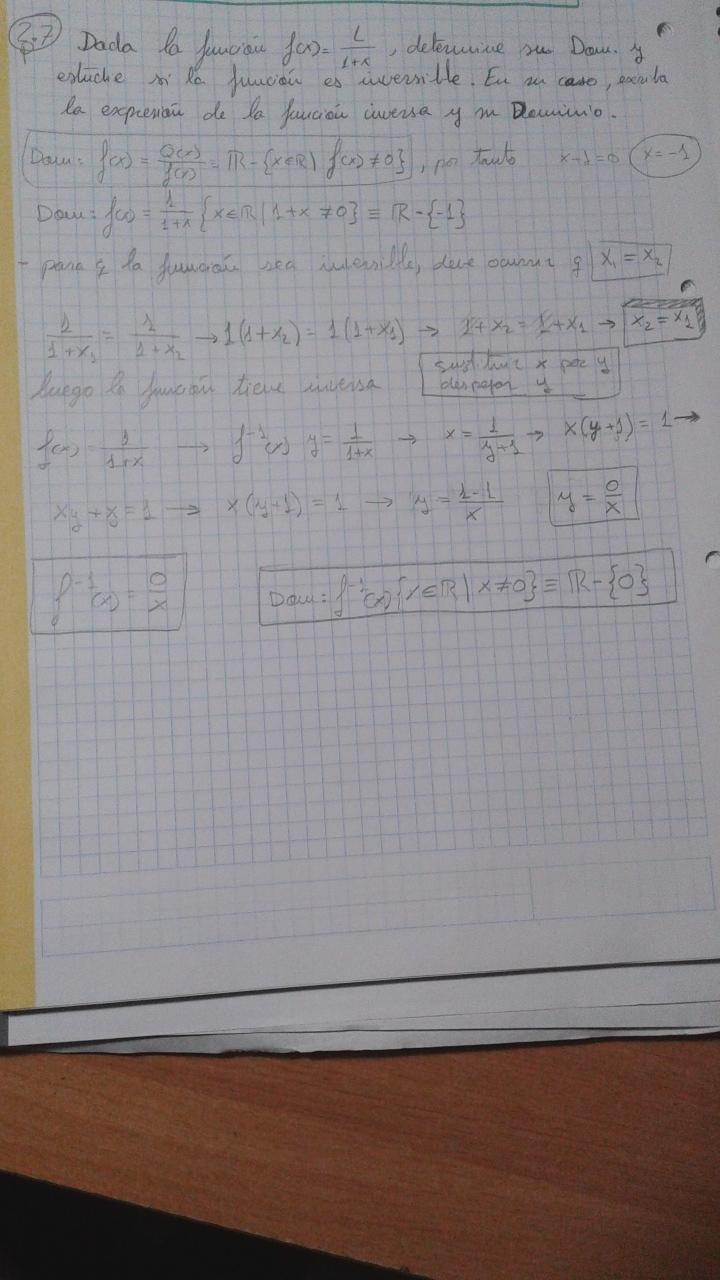 2.7 Dada la función f(x) = 1/(1+x), determine su Dom. y
estudie si la función es inversible. En su caso, escriba
la expresión de la función inversa y su Dominio.
Dom: f(x) = 0(x)/f(x) = ℝ - {x∈ℝ | f(x) ≠ 0}, por tanto x+1=0 x=-1
Dom: f(x) = 1/(1+x) {x∈ℝ | 1+x ≠ 0} ≡ ℝ - {-1}
- para q la función sea inversible, debe ocurrir q x₁ = x₂
1/(1+x₁) = 1/(1+x₂) → 1(1+x₂) = 1(1+x₁) → 1+x₂ = 1+x₁ → x₂ = x₁
luego la función tiene inversa
sustituir x por y
despejar y
f(x) = 1/(1+x) → f⁻¹(x) y = 1/(1+x) → x = 1/(y+1) → x(y+1) = 1 →
xy + x = 1 → x(y+1) = 1 → y = (1-1)/x y = 0/x
f⁻¹(x) = 0/x Dom: f⁻¹(x) {x∈ℝ | x ≠ 0} ≡ ℝ - {0}